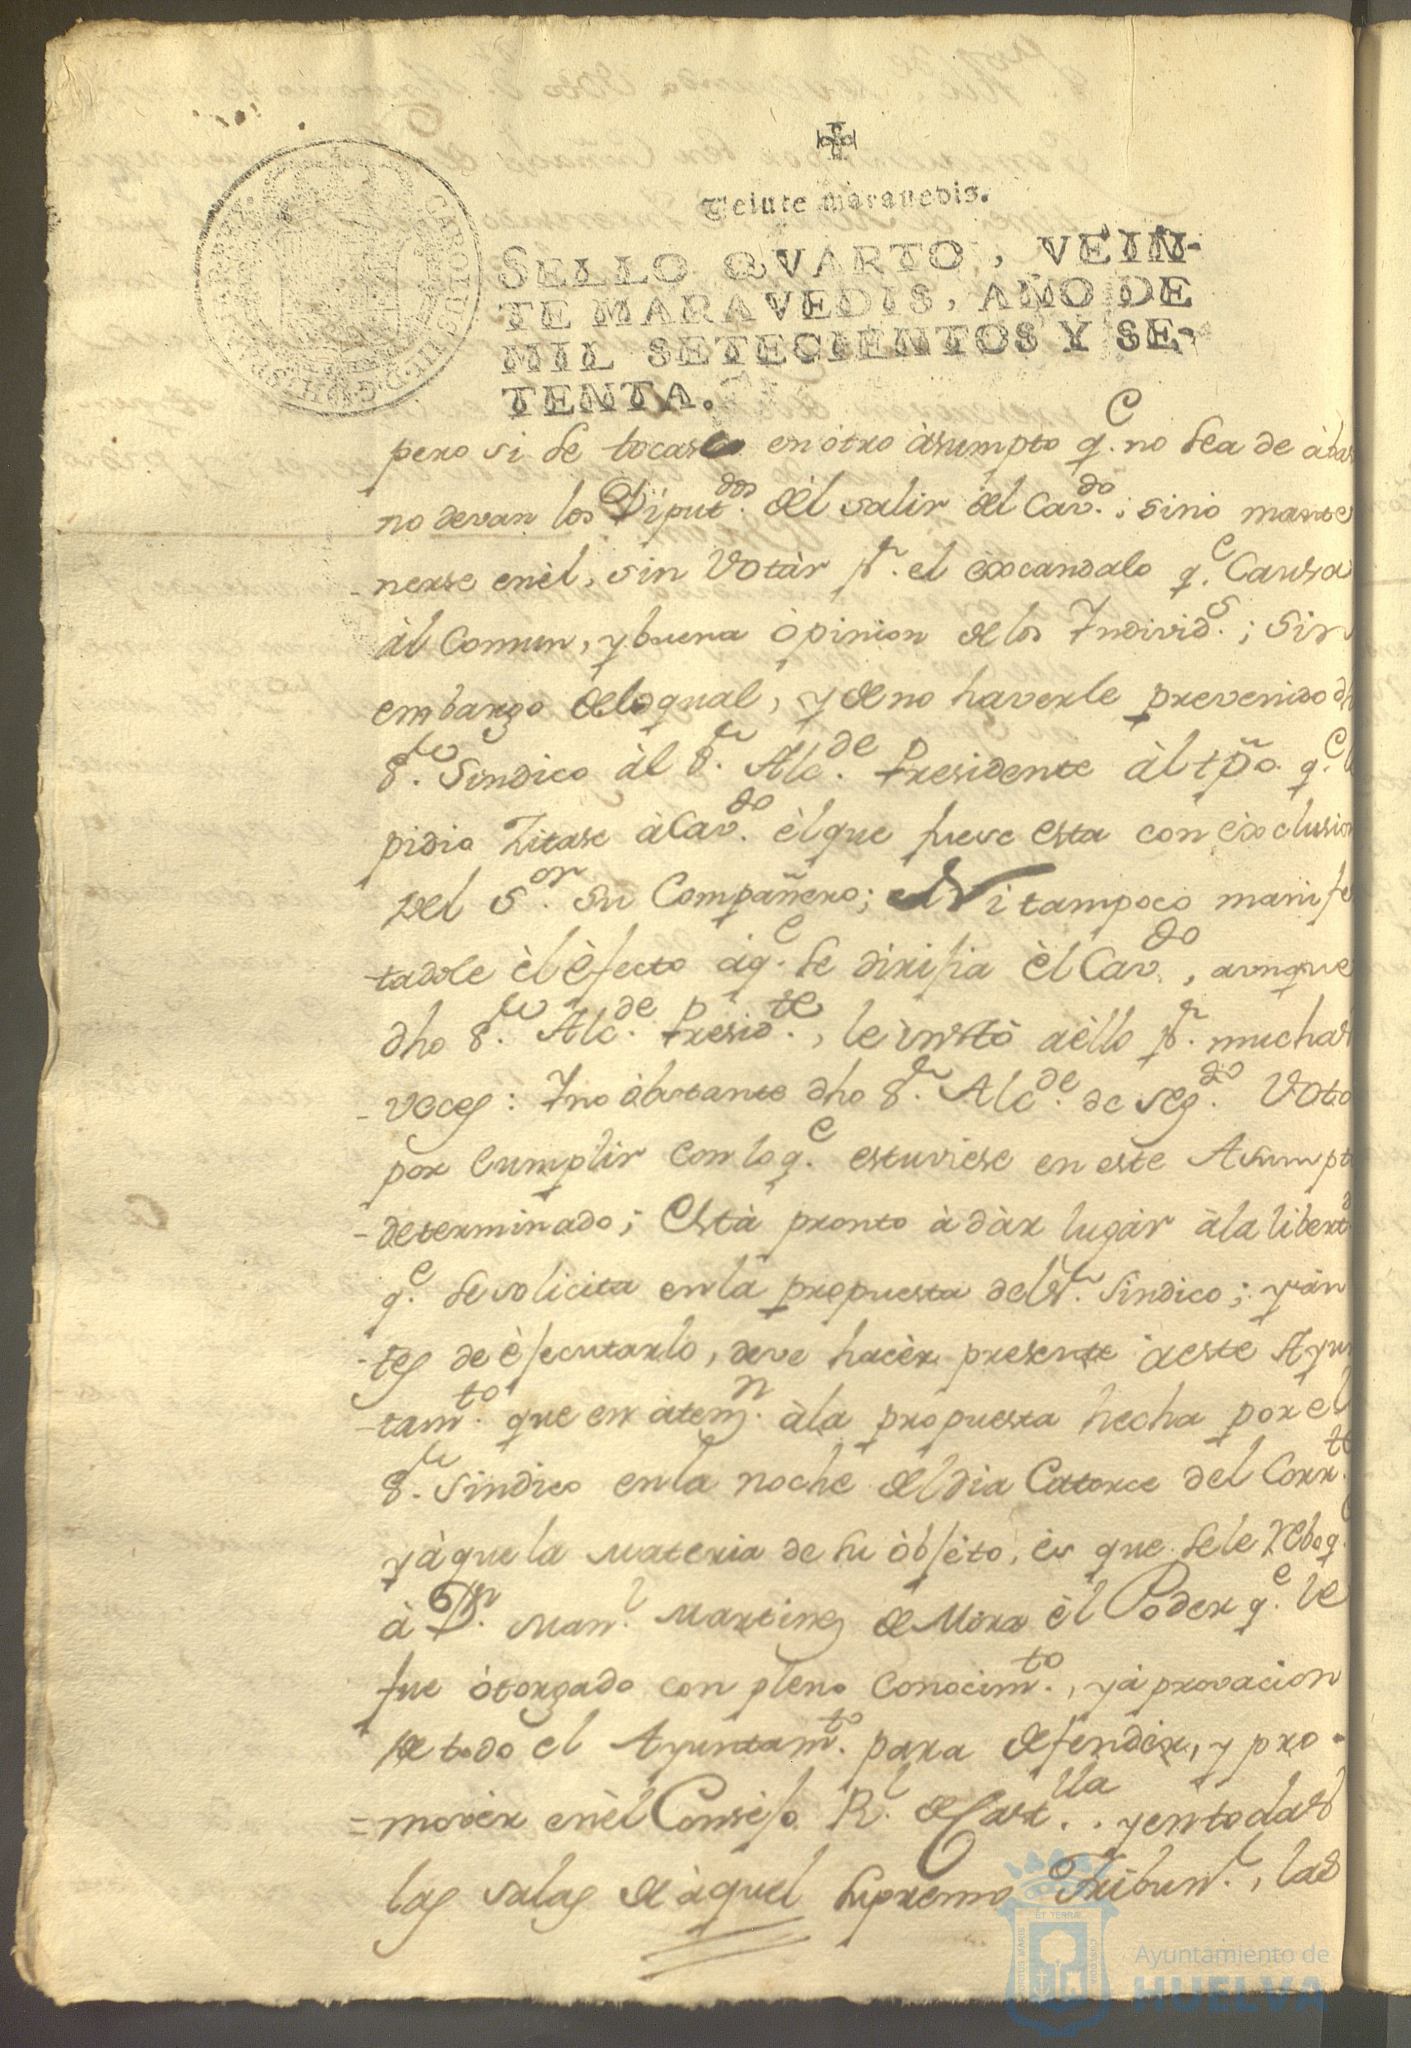 Veinte maravedis.
SELLO QVARTO, VEIN-
TE MARAVEDIS, AÑO DE
MIL SETECIENTOS Y SE-
TENTA.
pero si se tocase en otro àsumpto q.e no sea de
no devan los Diput.dos del salir del Cav.do; sino mante
-nerse enèl, sin Votàr p.r el excandalo q.e Causa
àl Comun, y buena òpinion de los Individ.s; Sin
embargo delo qual, y de no haverle prevenido
S.r Sindico àl S.r Alc.de Presidente àl tpõ q.e
pidio Zitase àCav.do èl que fuese esta con exclusion
del S.or su Compañero; Ni tampoco manifes
-tadole èl èfecto àq.e se dirijia èl Cav.do, aunque
dho S.r Alc.de Presid.te, le instò aèllo p.r muchas
-voces: Ino òbstante dho S.r Alc.de de seg.do Voto
por Cumplir con lo q.e estuviese en este Asumpto
-determinado; Està pronto à dàr lugàr àla libert.d
q.e se solicita en la propuesta del S.r Sindico; y àn
-tes de èjecutarlo, deve hacèr presente àeste Ayun
-tam.to que en àtem.n àla propuesta hecha por el
S.r Sindico en la noche del dia Catorce del Corr.te
yà que la Materia de su òbjèto, ès que se le
à D.n Man.l Martinez de Mora èl Poder q.e le
fue òtorgado con pleno Conocim.to, y àprovacion
de todo el Ayuntam.to para defendèr, y pro-
=movèr enèl Consejo R.l de Cast.lla.. y en todas
las salas de àquel Supremo Tribun.l, las
Ayuntamiento de
HUELVA